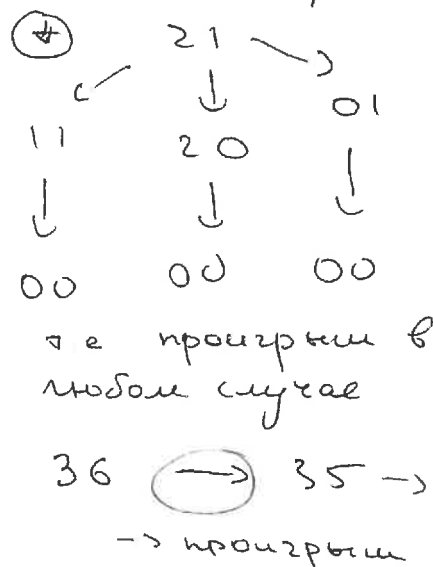 21
11 20 01
00 00 00
те проигрыш в
любом случае
36 → 35 →
→ проигрыш